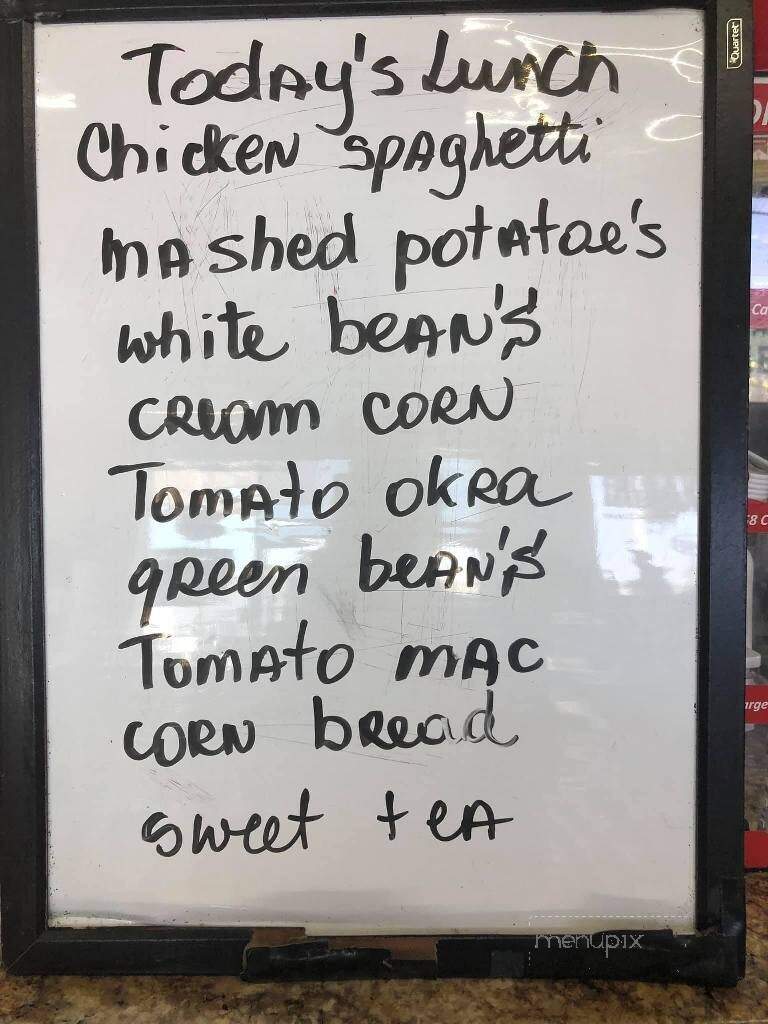 Quartet
Today's Lunch
Chicken spaghetti
mashed potatoe's
white bean's
cream corn
Tomato okra
green bean's
Tomato mac
corn bread
sweet tea
menupix